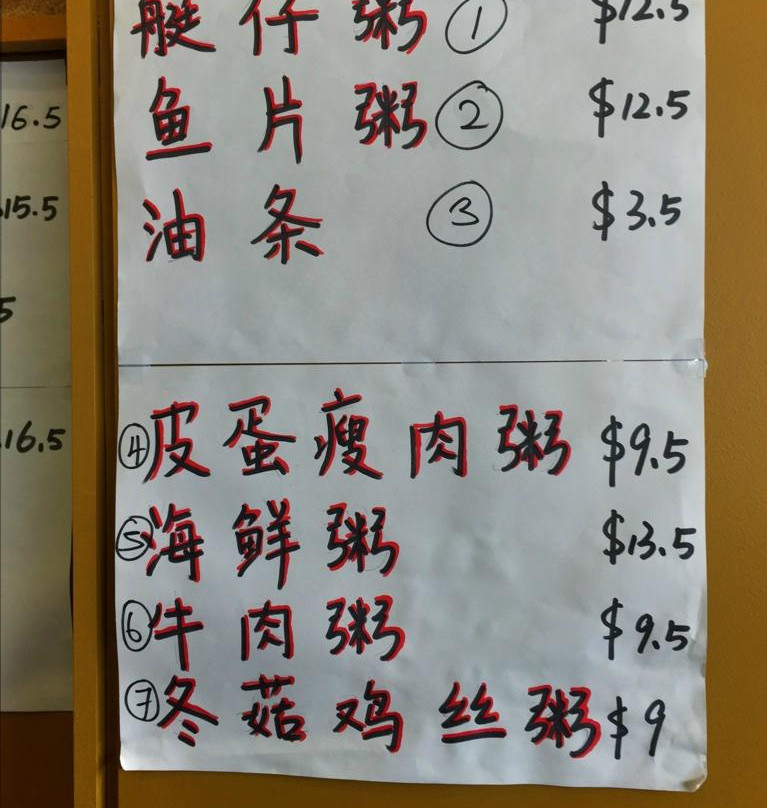 艇仔粥 ① $12.5
鱼片粥 ② $12.5
油条 ③ $3.5
④皮蛋瘦肉粥 $9.5
⑤海鲜粥 $13.5
⑥牛肉粥 $9.5
⑦冬菇鸡丝粥 $9
16.5
15.5
5
16.5